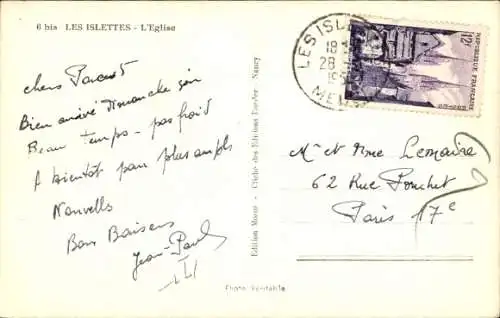 6 bis LES ISLETTES - L'Eglise
chers Parents
Bien arrivé Dimanche soir
Beau temps - pas froid
A bientôt pour plus amples
Nouvelles
Bons Baisers
Jean-Paul
Edition Moror - Cliché des Editions Nancy
LES ISLE
18
28
195
MEUSE
12F
REPUBLIQUE FRANÇAISE
Mr et Mme Lemaire
62 Rue Pouchet
Paris 17e
Photo véritable